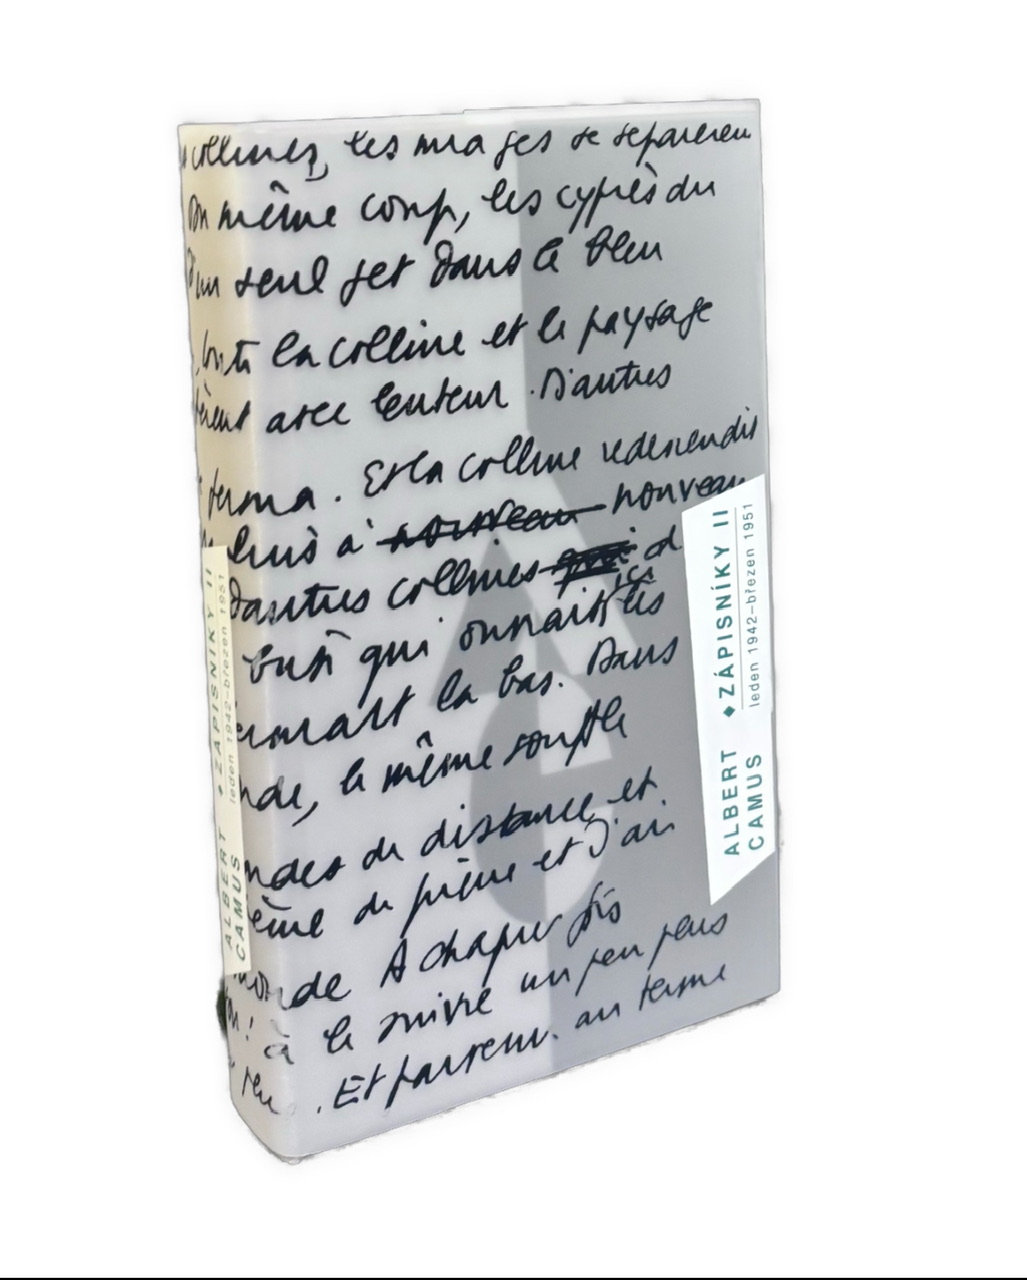 collines, les nuages se separèren
un même coup, les cyprès du
d'un seul jet dans le bleu
toute la colline et le paysage
avec lenteur. D'autres
. Et la colline redescendit
à nouveau nouveau
d'autres collines d
qui onnaiss
là bas. Dans
nde, le même souffle
ndes de distance et
ême de pierre et d'air
monde A chaque fois
à le suivre un peu plus
. Et parvenu au terme
ALBERT ◆ ZÁPISNÍKY II
CAMUS leden 1942–březen 1951
ALBERT ◆ ZÁPISNÍKY II
CAMUS leden 1942–březen 1951